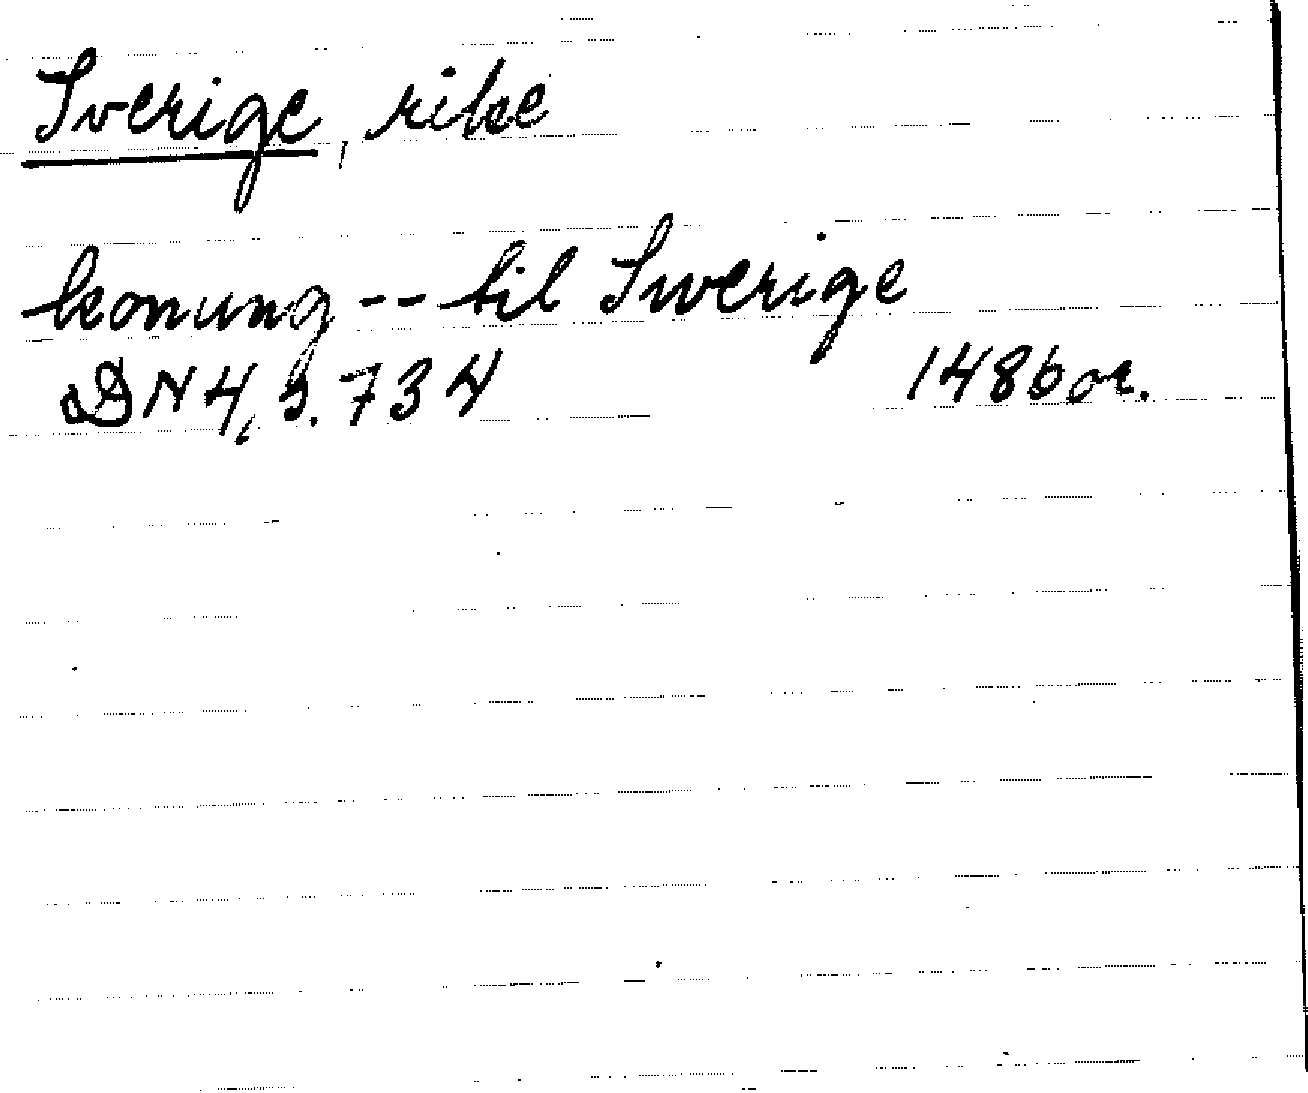 Sverige, rike
konung -- til Swerige
DN 4, s. 734 1486 or.